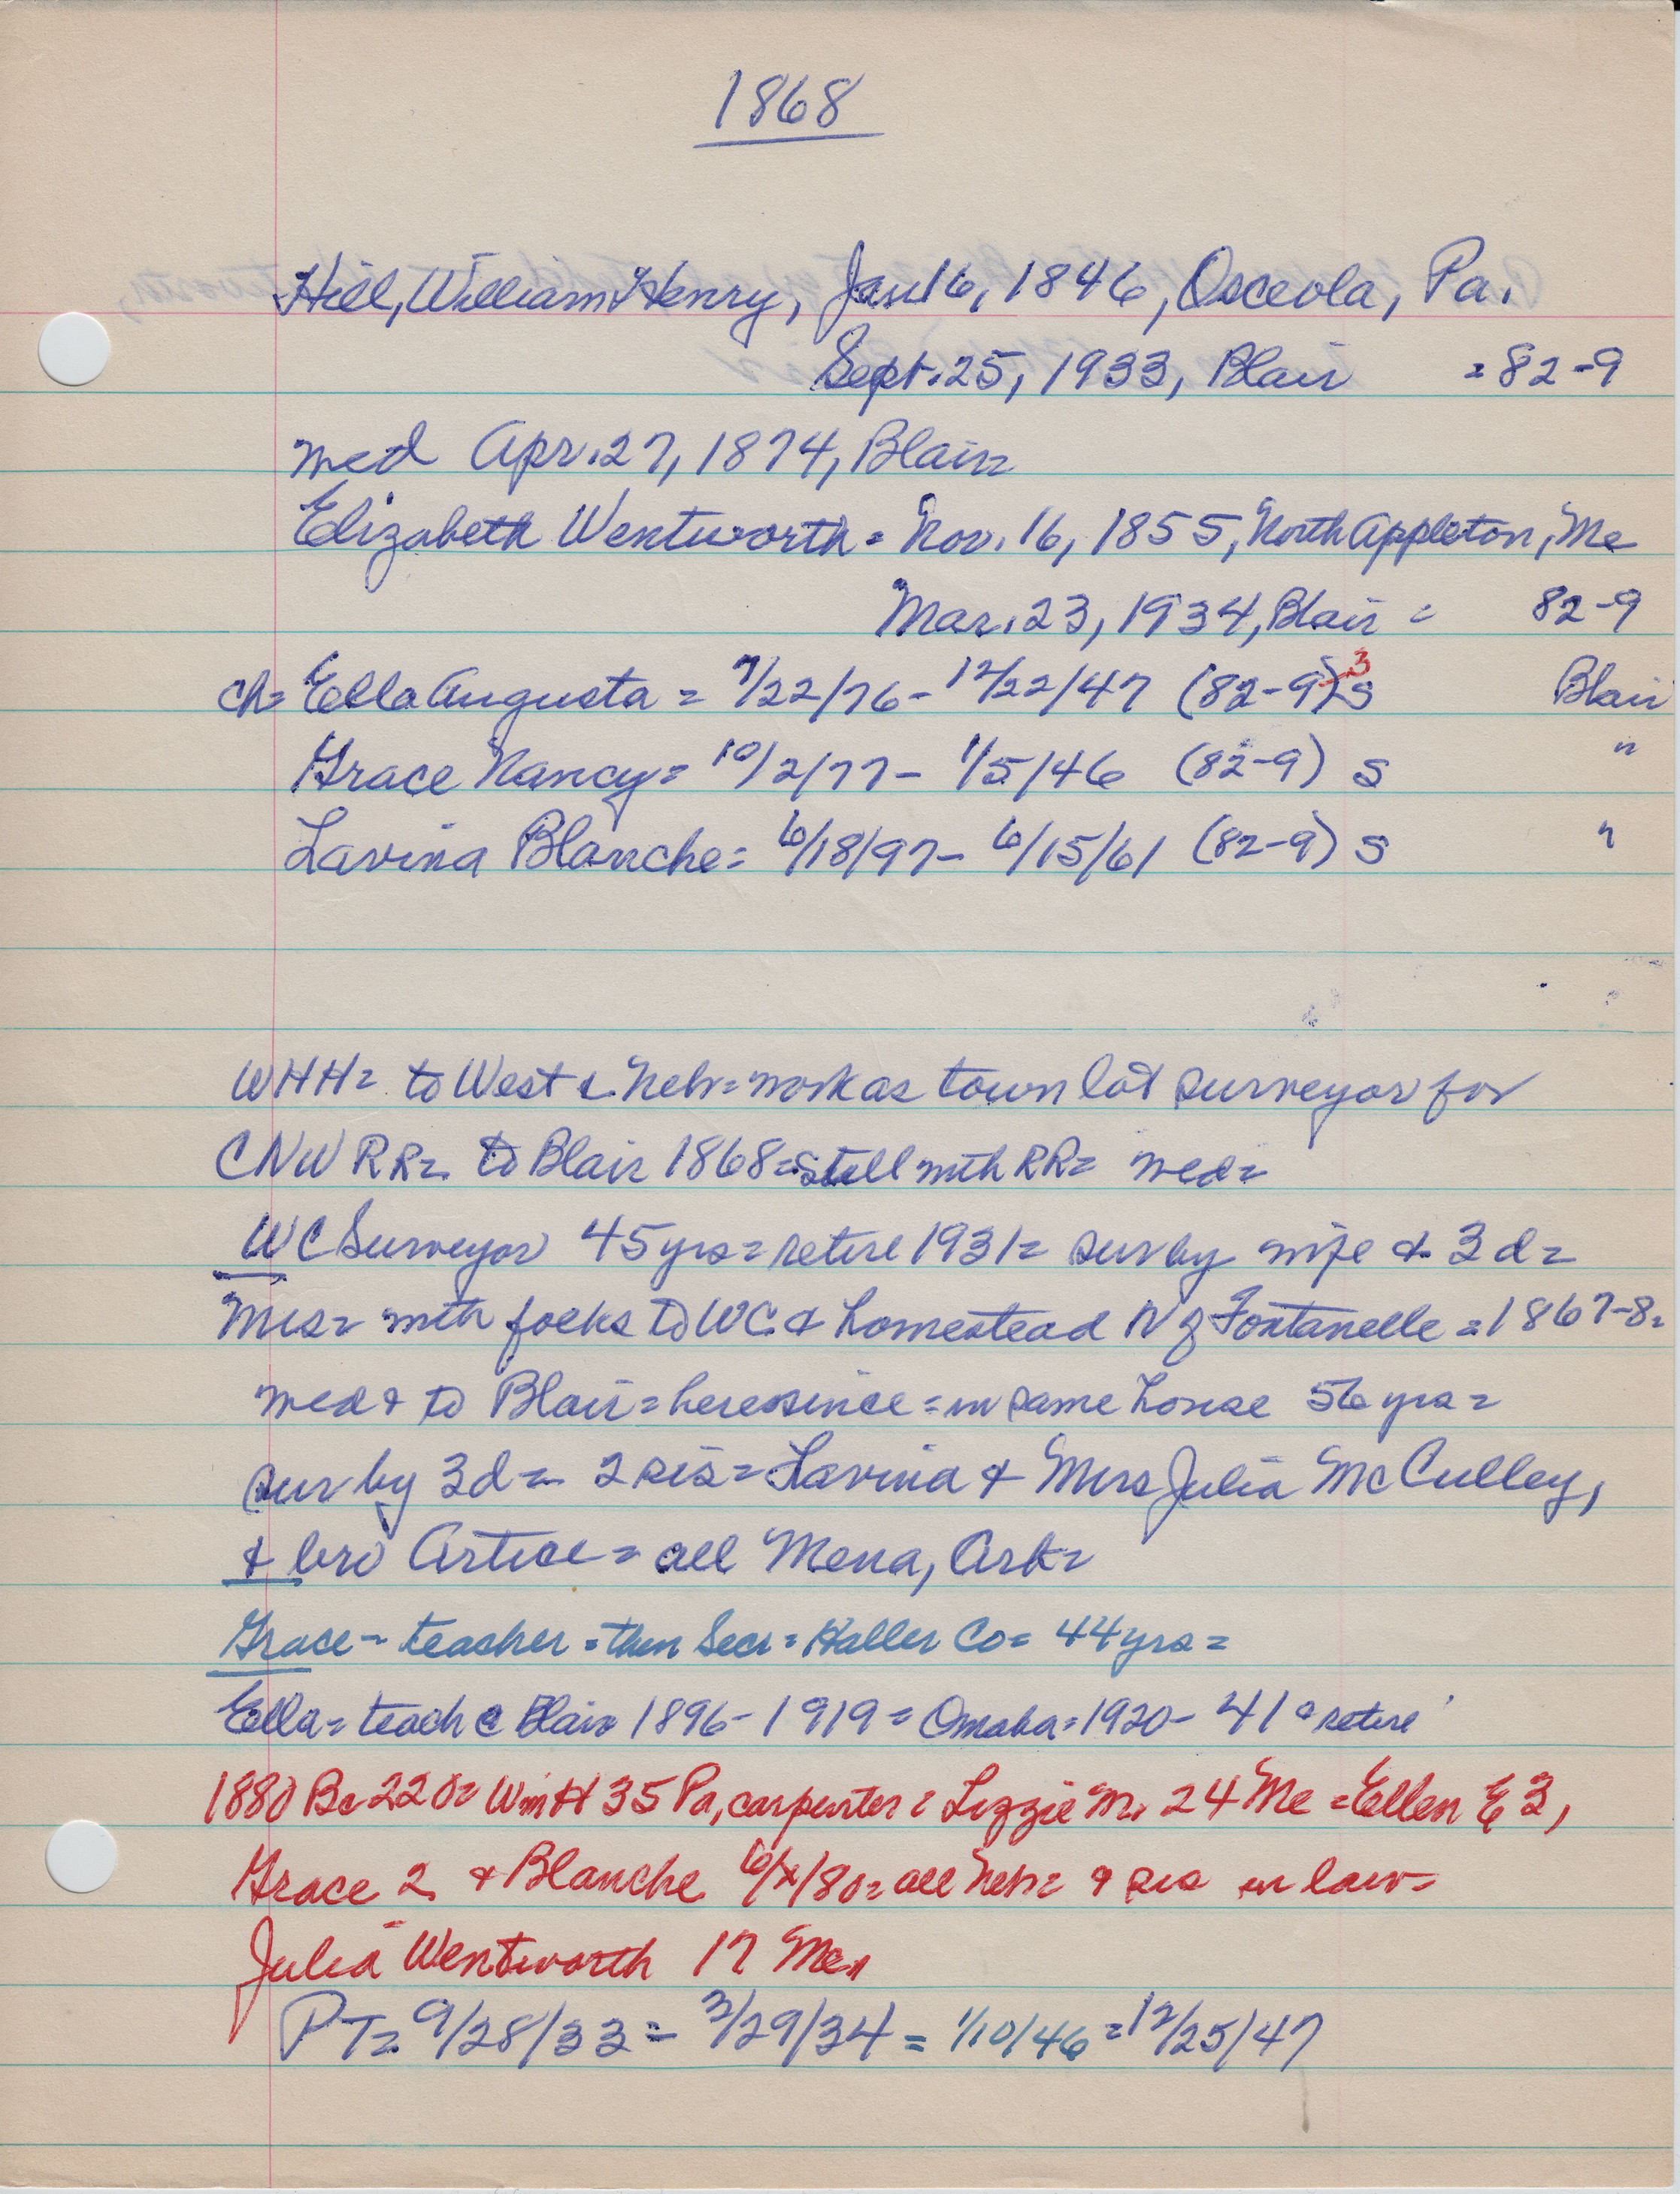 1868
Hill, William Henry, Jan 16, 1846, Osceola, Pa.
Sept. 25, 1933, Blair = 82-9
med Apr. 27, 1874, Blair=
Elizabeth Wentworth = Nov. 16, 1855, North Appleton, Me
Mar. 23, 1934, Blair = 82-9
ch= Ella Augusta = 7/22/76 - 12/22/47 (82-9) 3 S Blair
Grace Nancy = 10/2/77 - 1/5/46 (82-9) S "
Lavina Blanche = 6/18/97 - 6/15/61 (82-9) S "
WHH= to West & Neb= work as town lot surveyor for
CNW RR= to Blair 1868= still with RR= med=
WC Surveyor 45 yrs = retire 1931= sur by wife & 3 d=
Mrs= with folks to WC & homestead N of Fontanelle = 1867-8=
med & to Blair = here since = in same house 56 yrs =
sur by 3 d = 2 sis = Lavina & Mrs Julia McCulley,
& bro Artice = all Mena, Ark=
Grace - teacher = then Secr = Haller Co = 44 yrs =
Ella = teach @ Blair 1896-1919 = Omaha = 1920-41 & retire
1880 Bc 220= Wm H 35 Pa, carpenter = Lizzie M. 24 Me = Ellen E 3,
Grace 2 & Blanche 6/x/80= all Neb= & sis in law=
Julia Wentworth 17 Me=
PT= 9/28/33 = 3/29/34 = 1/10/46 = 12/25/47